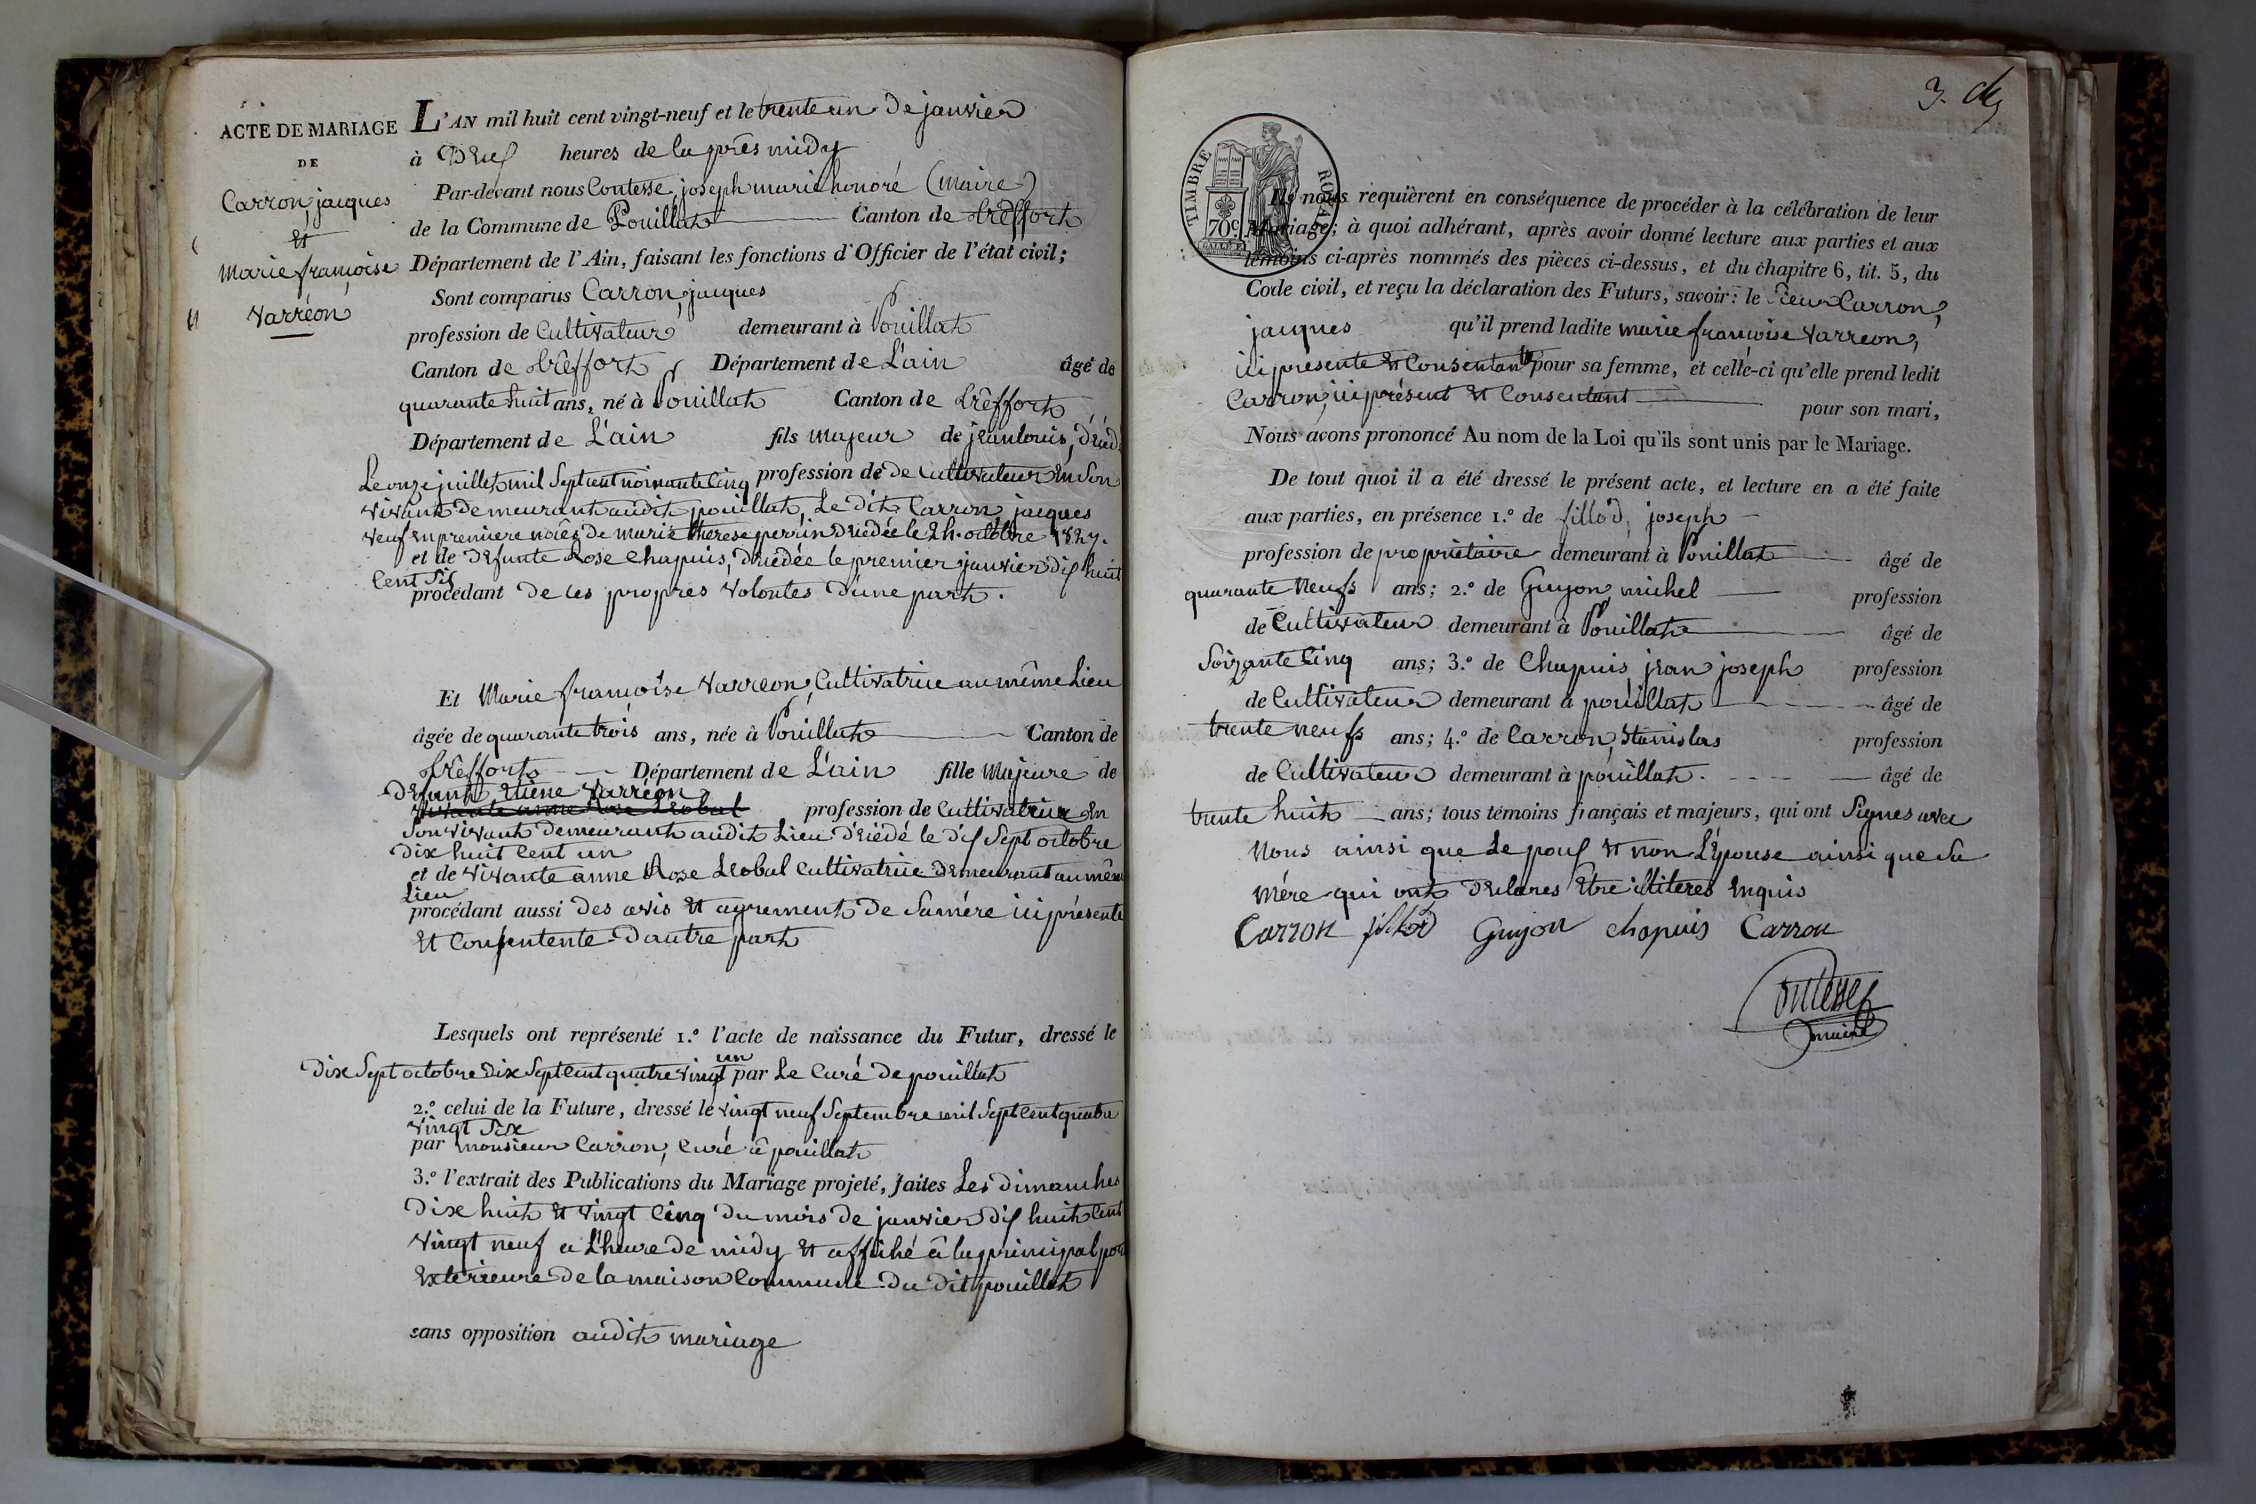 ACTE DE MARIAGE
DE
Carron, jacques
et
Marie françoise
Varréon
L'AN mil huit cent vingt-neuf et le trente un de janvier
à Deux heures de la près midy
Par-devant nous Contesse, joseph marie honoré (maire)
de la Commune de Pouillat Canton de trêffort
Département de l'Ain, faisant les fonctions d'Officier de l'état civil;
Sont comparus Carron, jacques
profession de Cultivateur demeurant à Pouillat
Canton de trêffort Département de L'ain âgé de
quarante huit ans, né à Pouillat Canton de trêffort
Département de L'ain fils majeur de jean louis, décéd
Le onze juillet mil Sept cent nonante Cinq profession de de Cultivateur En Son
vivant demeurant audit pouillat, Le dit Carron, jacques
veuf en premiere noces de marie therese perrin décédée le 24 octobre 1827.
et de Défunte Rose Chapuis, décédée le premier janvier dix huit
Cent Six
procédant de ces propres volontes d'une part.
Et Marie françoise Varreon, Cultivatrice au même Lieu
âgée de quarante trois ans, née à Pouillat Canton de
trêffort Département de L'ain fille Majeure de
Défunt Etiene Varréon
vivante anne Rose Leobal profession de Cultivatrice En
Son vivant demeurant audit Lieu décédé le dix Sept octobre
dix huit Cent un
et de vivante anne Rose Leobal Cultivatrice demeurant au mêm
Lieu
procédant aussi des avis et agrement de Sa mére ici présente
et Consentente d'autre part
Lesquels ont représenté 1.º l'acte de naissance du Futur, dressé le
dix Sept octobre dix Sept Cent quatre vingt un par Le Curé de pouillat
2.º celui de la Future, dressé le vingt neuf Septembre mil Sept Cent quatre
vingt Six
par monsieur Carron, Curé à pouillat
3.º l'extrait des Publications du Mariage projeté, faites Les dimanches
Dix huit et vingt Cinq du mois de janvier dix huit Cent
vingt neuf a L'heure de midy et affiché â la principal por
Exterieure de la maison Commune du dit pouillat
sans opposition audit mariage
3.
TIMBRE ROYAL
70c.
Ils nous requièrent en conséquence de procéder à la célébration de leur
Mariage; à quoi adhérant, après avoir donné lecture aux parties et aux
témoins ci-après nommés des pièces ci-dessus, et du chapitre 6, tit. 5, du
Code civil, et reçu la déclaration des Futurs, savoir: le Sieur Carron,
jacques qu'il prend ladite marie françoise Varreon,
ici présente et Consentante pour sa femme, et celle-ci qu'elle prend ledit
Carron, ici présent et Consentant pour son mari,
Nous avons prononcé Au nom de la Loi qu'ils sont unis par le Mariage.
De tout quoi il a été dressé le présent acte, et lecture en a été faite
aux parties, en présence 1.º de fillod, joseph
profession de propriétaire demeurant à Pouillat âgé de
quarante Neufs ans; 2.º de Guyon, michel profession
de Cultivateur demeurant à Pouillat âgé de
Soizante Cinq ans; 3.º de Chapuis, jean joseph profession
de Cultivateur demeurant à pouillat âgé de
trente neufs ans; 4.º de Carron, Stanislas profession
de Cultivateur demeurant à pouillat. âgé de
trente huit ans; tous témoins français et majeurs, qui ont Signes avec
Nous ainsi que Le poux et non L'Epouse ainsi que Sa
mére qui ont Déclares Etre illiteres Enquis
Carron fillod Guyon chapuis Carron
Contesse
maire